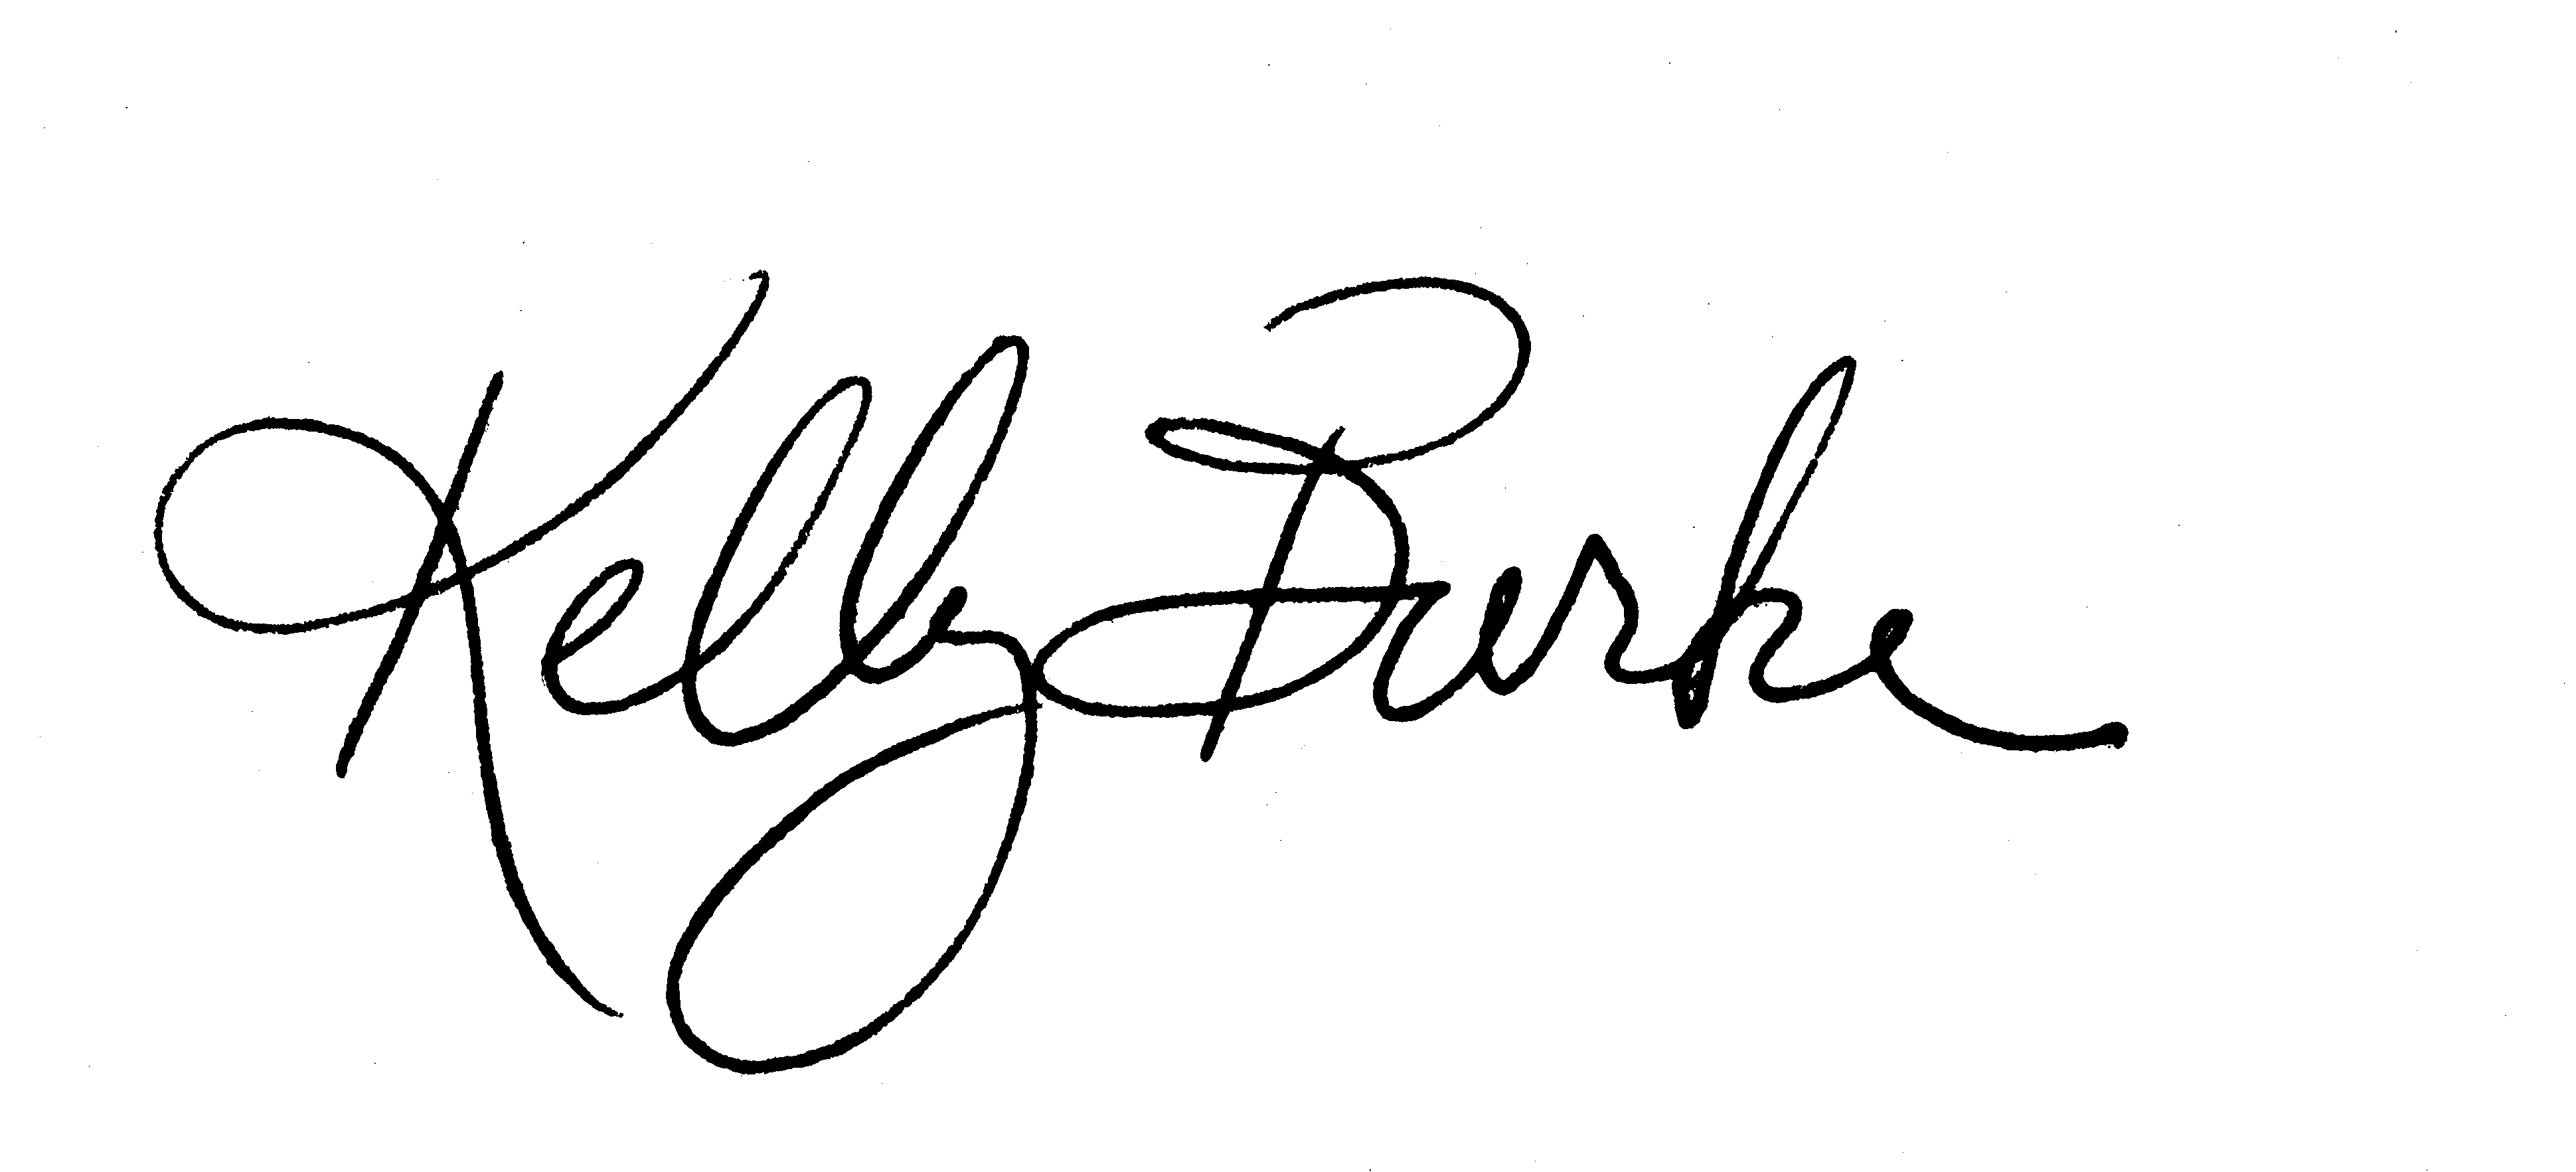 Kelly Burke